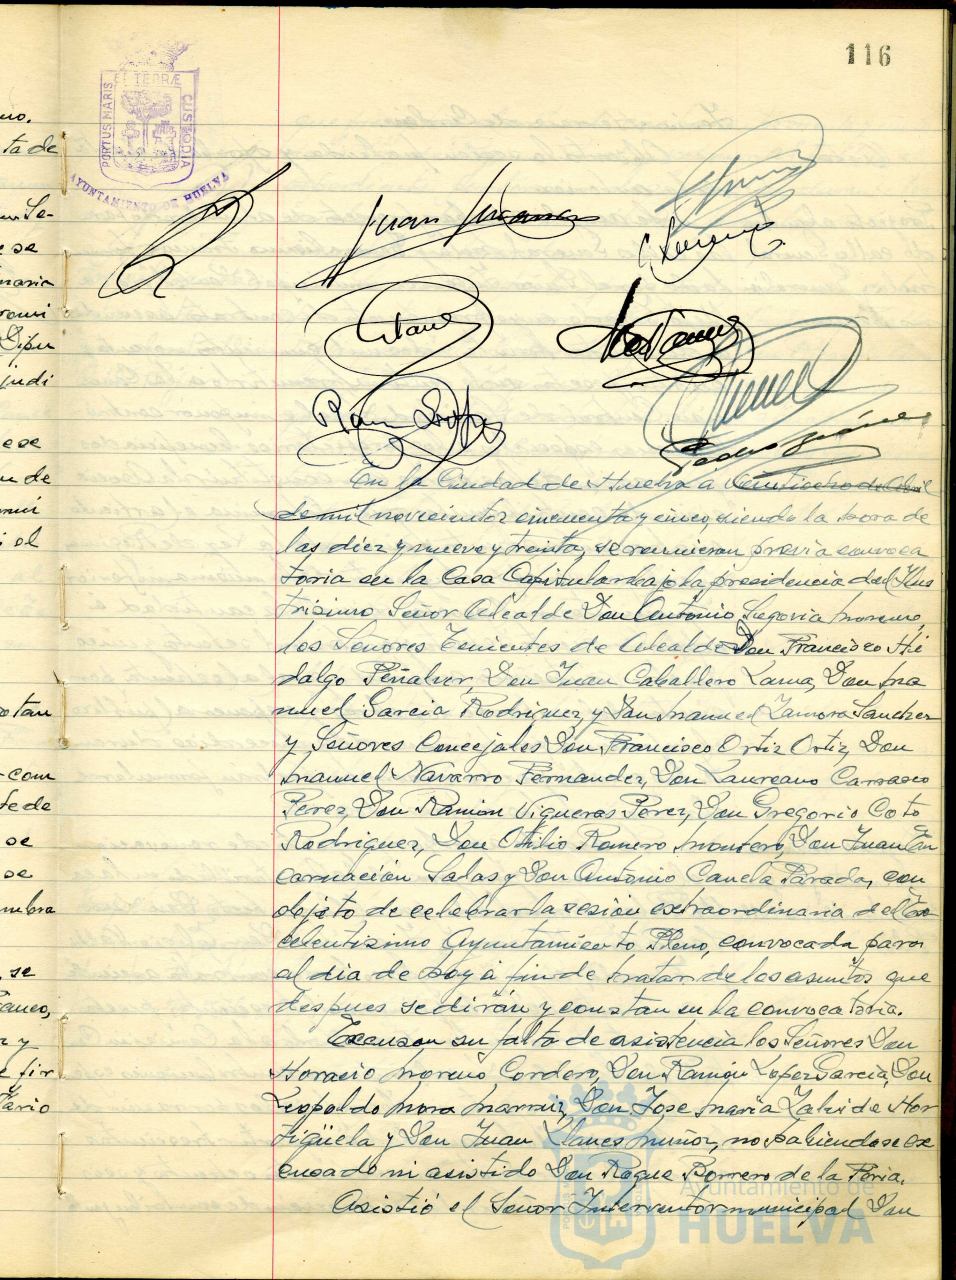 116
PORTUS MARIS
ET TERRÆ
CUSTODIA
AYUNTAMIENTO DE HUELVA
no.
ta de
Se-
se
naria
Dipu
judi
ese
de
el
otan
com
se
se
mbra
se
y
fir
y
tario
Juan
Pedro
En la Ciudad de Huelva a veintiocho de Abril
de mil novecientos cincuenta y cinco, siendo la hora de
las diez y nueve y treinta, se reunieron previa convoca
toria en la Casa Capitular bajo la presidencia del Ilus
trisimo Señor Alcalde Don Antonio Segovia Moreno,
los Señores Tenientes de Alcalde Don Francisco Hi
dalgo Peñalver, Don Juan Caballero Lama, Don Ma
nuel Garcia Rodriguez, y Don Manuel Zamora Sanchez
y Señores Concejales Don Francisco Ortiz Ortiz, Don
Manuel Navarro Fernandez, Don Laureano Carrasco
Perez, Don Ramon Vigueras Perez, Don Gregorio Coto
Rodriguez, Don Otilio Romero Montero, Don Juan En
carnación Salas y Don Antonio Canela Parada, con
objeto de celebrar la sesión extraordinaria del Ex
celentisimo Ayuntamiento Pleno, convocada para
el dia de hoy a fin de tratar de los asuntos que
despues se dirán y constan en la convocatoria.
Excusan su falta de asistencia los Señores Don
Horacio Moreno Cordero, Don Ramón Lopez Garcia, Don
Leopoldo Mora Marruz, Don Jose Maria Zalvide Hor
tigüela y Don Juan Llanes Muñoz, no habiendose ex
cusado ni asistido Don Roque Borrero de la Feria.
Asistió el Señor Interventor municipal Don
Ayuntamiento de
HUELVA